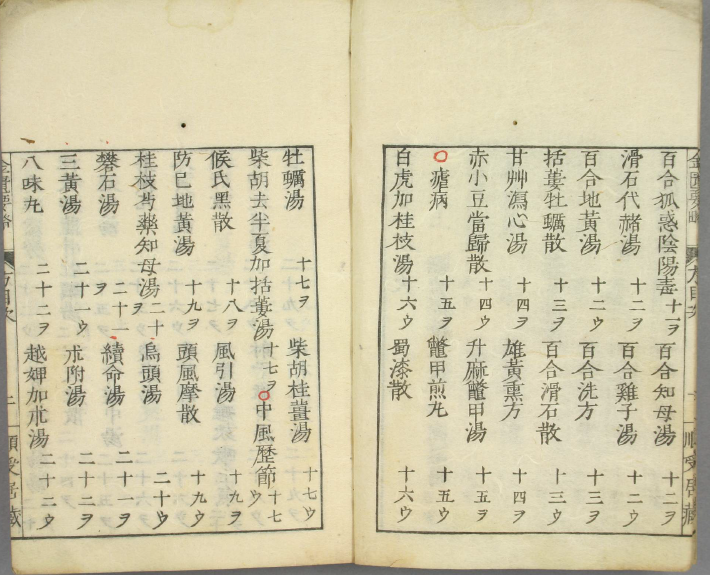 百合狐惑陰陽毒 十一ヲ 百合知母湯 十二ヲ
滑石代赭湯 十二ウ 百合雞子湯 十二ウ
百合地黃湯 十二ウ 百合洗方 十三ヲ
括蔞牡蠣散 十三ヲ 百合滑石散 十三ウ
甘艸瀉心湯 十四ウ 雄黃熏方 十四ヲ
赤小豆當歸散 十四ウ 升麻鼈甲湯 十五ヲ
瘧病 十五ヲ 鼈甲煎丸 十五ウ
白虎加桂枝湯 十六ウ 蜀漆散 十六ウ
牡蠣湯 十七ヲ 柴胡桂薑湯 十七ウ
柴胡去半夏加括蔞湯 十七ヲ 中風歷節 十七ウ
候氏黑散 十八ヲ 風引湯 十九ヲ
防己地黃湯 十九ヲ 頭風摩散 十九ウ
桂枝芍藥知母湯 二十 烏頭湯 二十ウ
礬石湯 二十一ヲ 續命湯 二十一ヲ
三黃湯 二十一ウ 朮附湯 二十二ヲ
八味丸 二十二ヲ 越婢加朮湯 二十二ウ
金匱要略 方目次 二 順受居藏